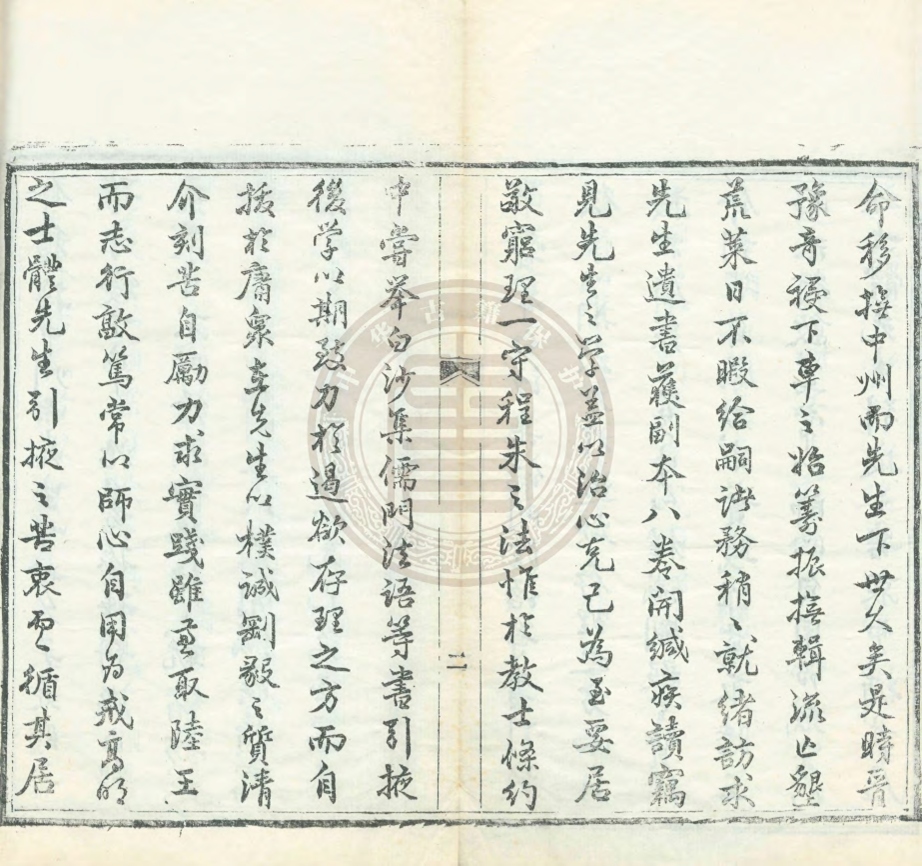 命移撫中州而先生下世久矣是時晉
豫奇祲下車之始籌振撫輯流亡墾
荒萊日不暇給嗣游務稍〻就緒訪求
先生遺書獲副本八卷開緘疾讀竊
見先生之學蓋以治心克己為至要居
敬窮理一守程朱之法惟於教士條約
二
中嘗舉白沙集儒門法語等書引掖
後學以期致力於遏欲存理之方而自
拔於庸眾蓋先生以樸誠剛毅之質清
介刻苦自勵力求實踐雖兼取陸王
而志行敦篤常以師心自用為戒高明
之士體先生引掖之苦衷更循其居